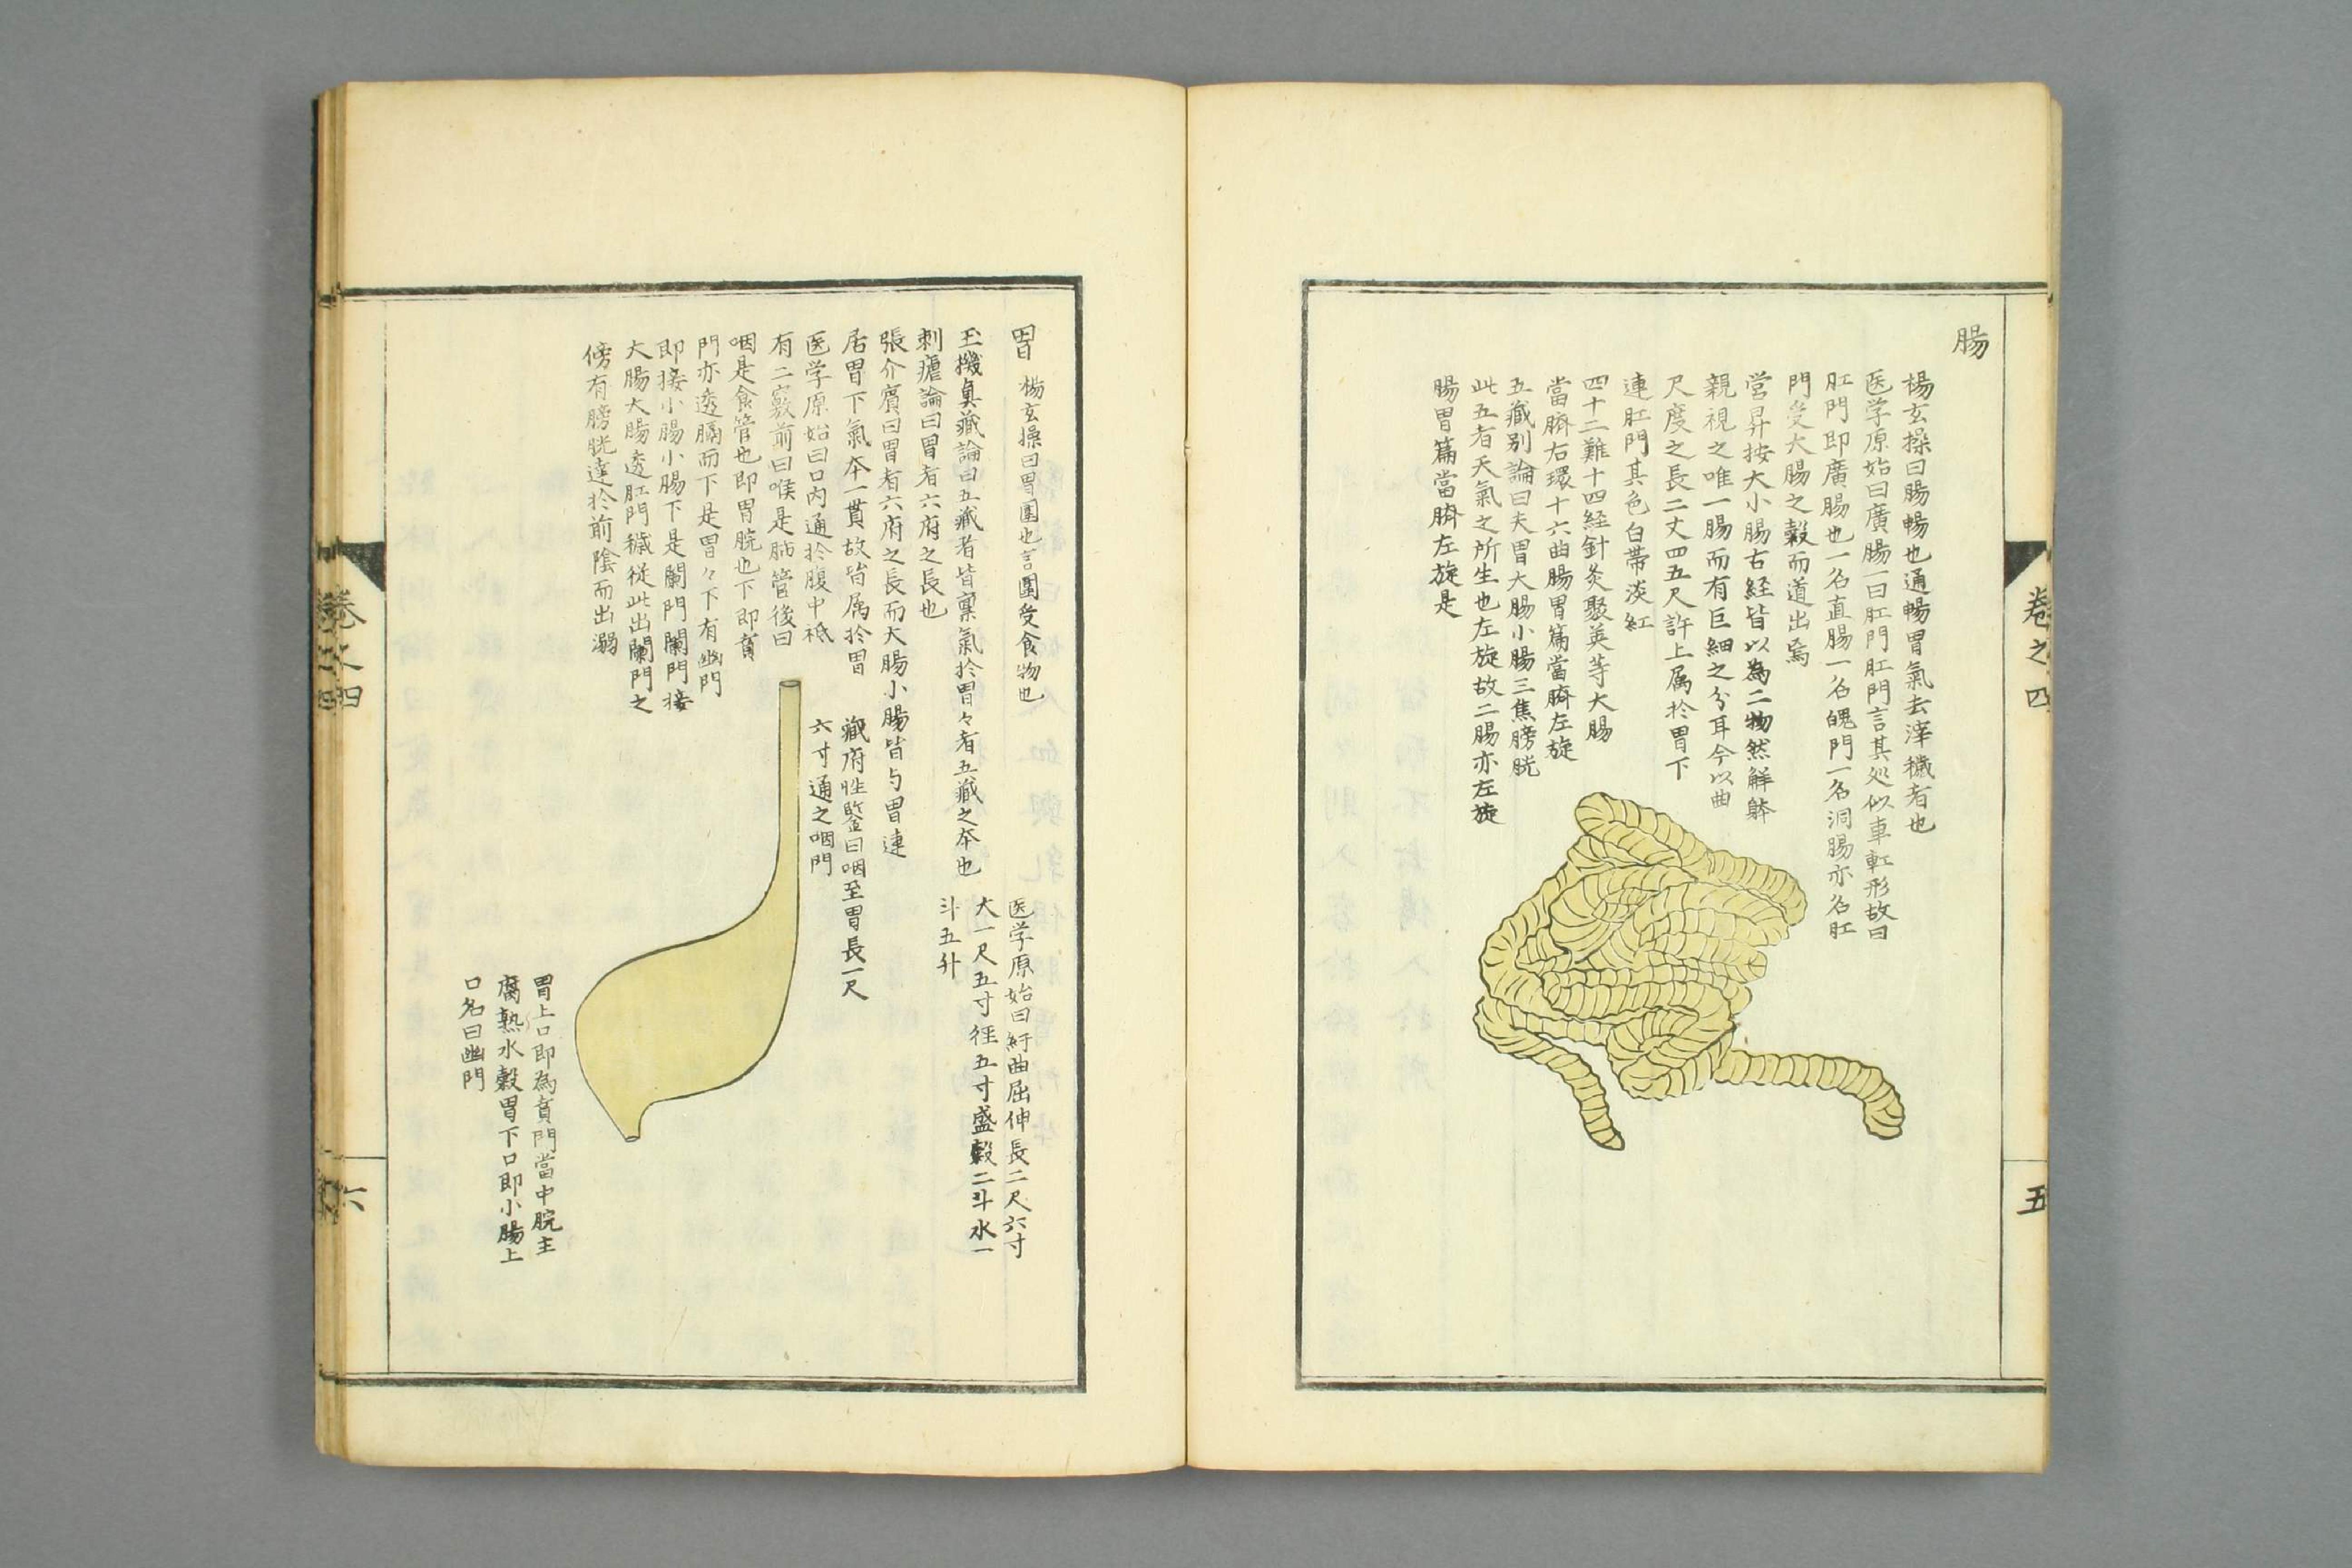 卷之四
五
腸
楊玄操曰腸暢也通暢胃氣去滓穢者也
医学原始曰廣腸一曰肛門肛門言其処似車軖形故曰
肛門即廣腸也一名直腸一名魄門一名洞腸亦名肛
門受大腸之穀而道出焉
営昇按大小腸古経皆以為二物然觧躰
親視之唯一腸而有巨細之分耳今以曲
尺度之長二丈四五尺許上属於胃下
連肛門其色白帯淡紅
四十二難十四経針灸聚英等大腸
當臍右環十六曲腸胃篇當臍左旋
五藏别論曰夫胃大腸小腸三焦膀胱
此五者天氣之所生也左旋故二腸亦左旋
腸胃篇當臍左旋是
胃
楊玄操曰胃圍也言圍受食物也
玉機真藏論曰五藏者皆稟氣於胃々者五藏之夲也
刺瘧論曰胃者六府之長也
張介賓曰胃者六府之長而大腸小腸皆与胃連
居胃下氣夲一貫故皆属於胃
医学原始曰口内通於腹中祗
有二竅前曰喉是肺管後曰
咽是食管也即胃脘也下即賁
門亦透膈而下是胃々下有幽門
即接小腸小腸下是闌門闌門接
大腸大腸透肛門穢従此出闌門之
傍有膀胱達於前陰而出溺
医学原始曰紆曲屈伸長二尺六寸
大一尺五寸径五寸盛穀二斗水一
斗五升
藏府性鑒曰咽至胃長一尺
六寸通之咽門
胃上口即為賁門當中脘主
腐熟水穀胃下口即小腸上
口名曰幽門
卷之四
六